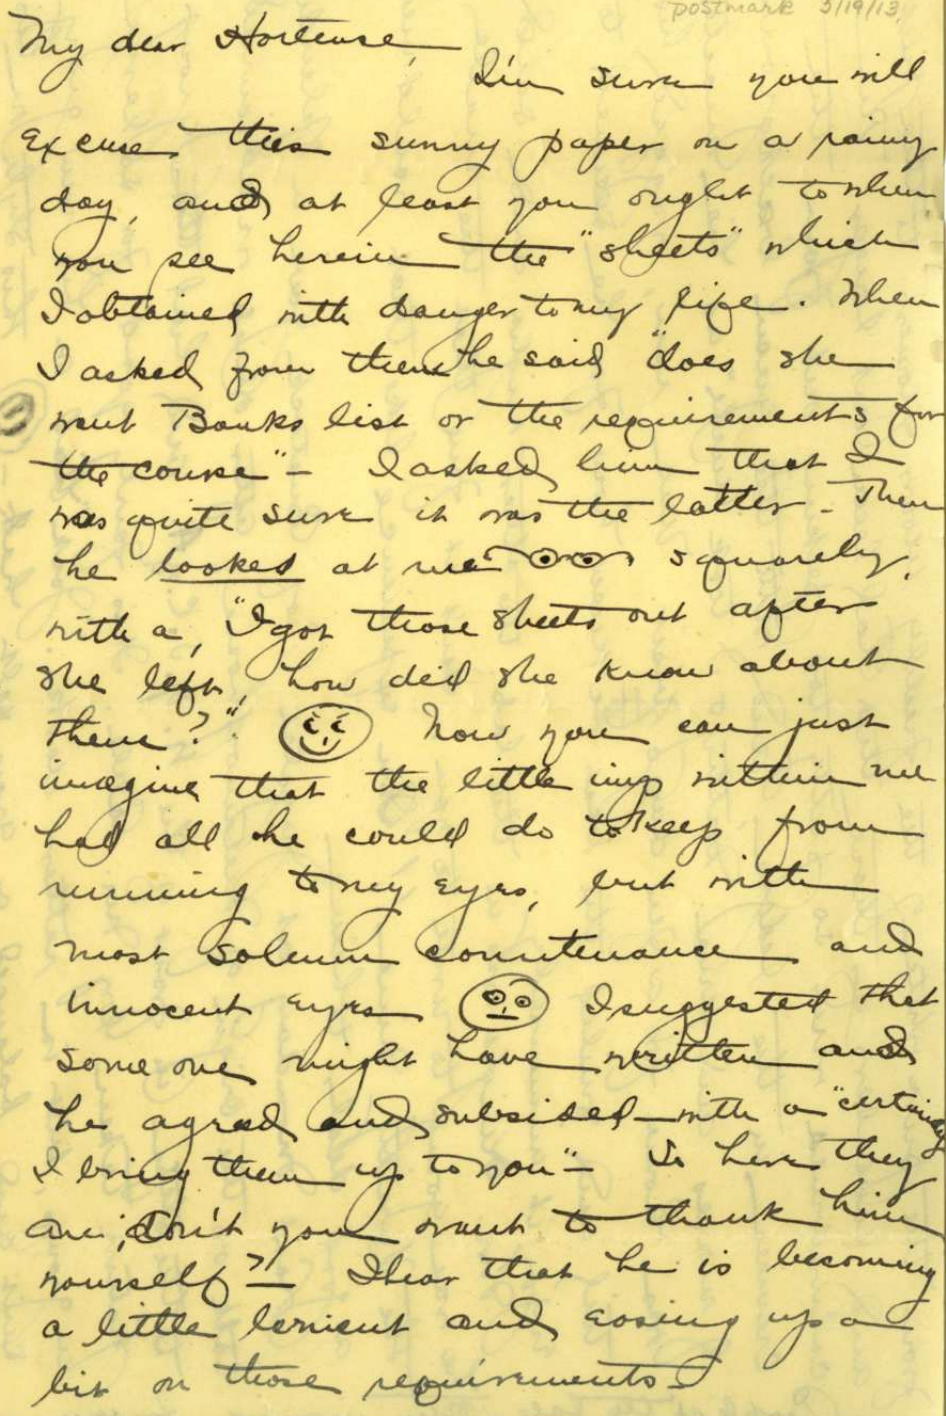 postmark 5/19/13.
My dear Hortense,
I'm sure you will
excuse this sunny paper on a rainy
day, and at least you ought to when
you see herein the "sheets" which
I obtained with danger to my life. When
I asked for them he said "does she
want Banks list or the requirements for
the course" - I asked him that I
was quite sure it was the latter - Then
he looked at me squarely,
with a, "I got those sheets out after
she left, how did she know about
them?". Now you can just
imagine that the little imp within me
had all he could do to keep from
running to my eyes, but with
most solemn countenance and
innocent eyes I suggested that
some one might have written and
he agreed and subsided - with a "certainly
I bring them up to you" - So here they
are; don't you want to thank him
yourself? - I hear that he is becoming
a little lenient and easing up a
bit on those requirements -